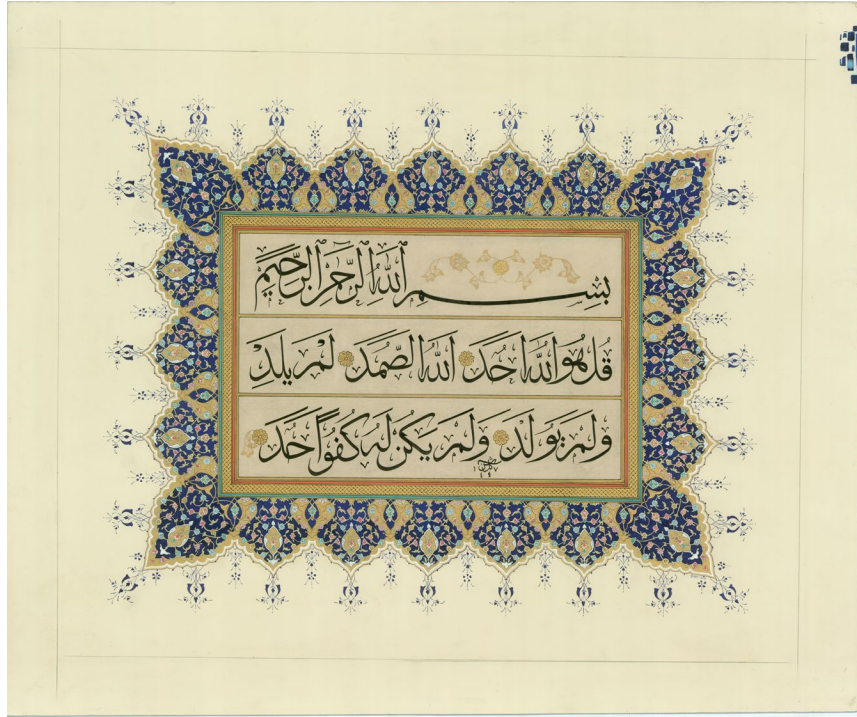 بِسْمِ اللَّهِ الرَّحْمَنِ الرَّحِيمِ
قُلْ هُوَ اللَّهُ أَحَدٌ اللَّهُ الصَّمَدُ لَمْ يَلِدْ
وَلَمْ يُولَدْ وَلَمْ يَكُنْ لَهُ كُفُوًا أَحَدٌ